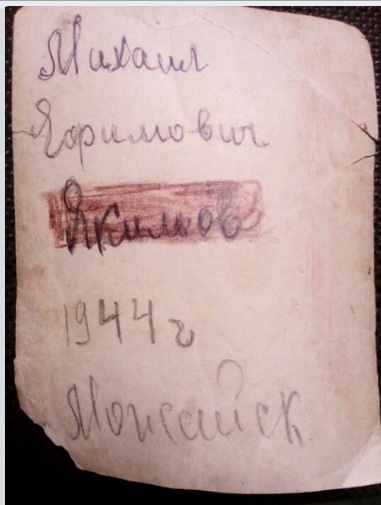 Михаил
Ефимович
Якимов
1944 г
Можайск.